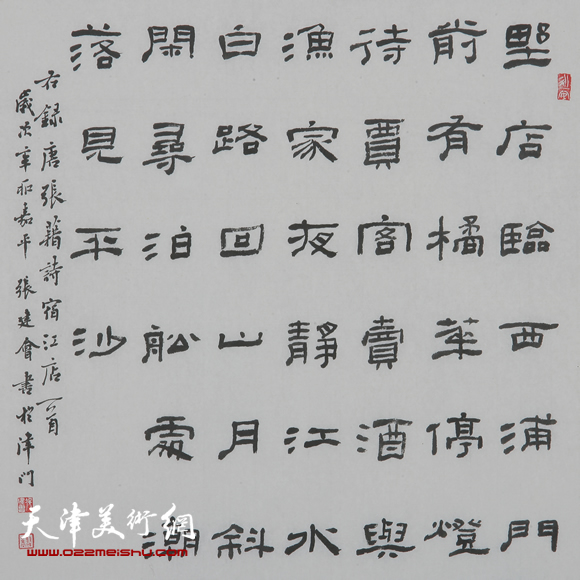 野店臨西浦門
前有橘華停燈
待賈客賣酒與
漁家夜靜江水
白路回山月斜
閑尋泊船處潮
落見平沙
右錄唐張籍詩宿江店一首
歲次辛卯嘉平張建會書於津門
天津美術網
www.022meishu.com